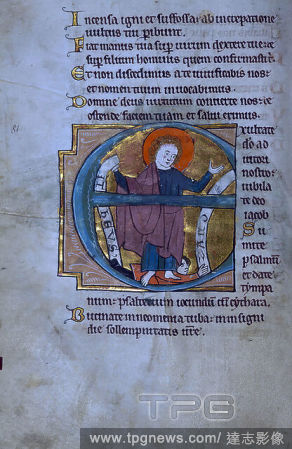 Incensa igni et suffossa: ab increpatione
uultus tui peribunt.
Fiat manus tua sup uirum dextere tue: et
sup filium hominis quem confirmasti
Et non discedimus a te uiuificabis nos:
et nomen tuum inuocabimus.
Domine deus uirtutum conuerte nos: et
ostende faciem tuam et salui erimus.
81
Exultate
deo ad
iutori
nostro:
iubila
te deo
iacob
Su
mite
psalmū
et date
tympa
num: psalterium iocundum cū cythara.
Bucinate in neomenia tuba: in insigni
die sollempnitatis nr̄e.
TPG
www.tpgnews.com / 達志影像